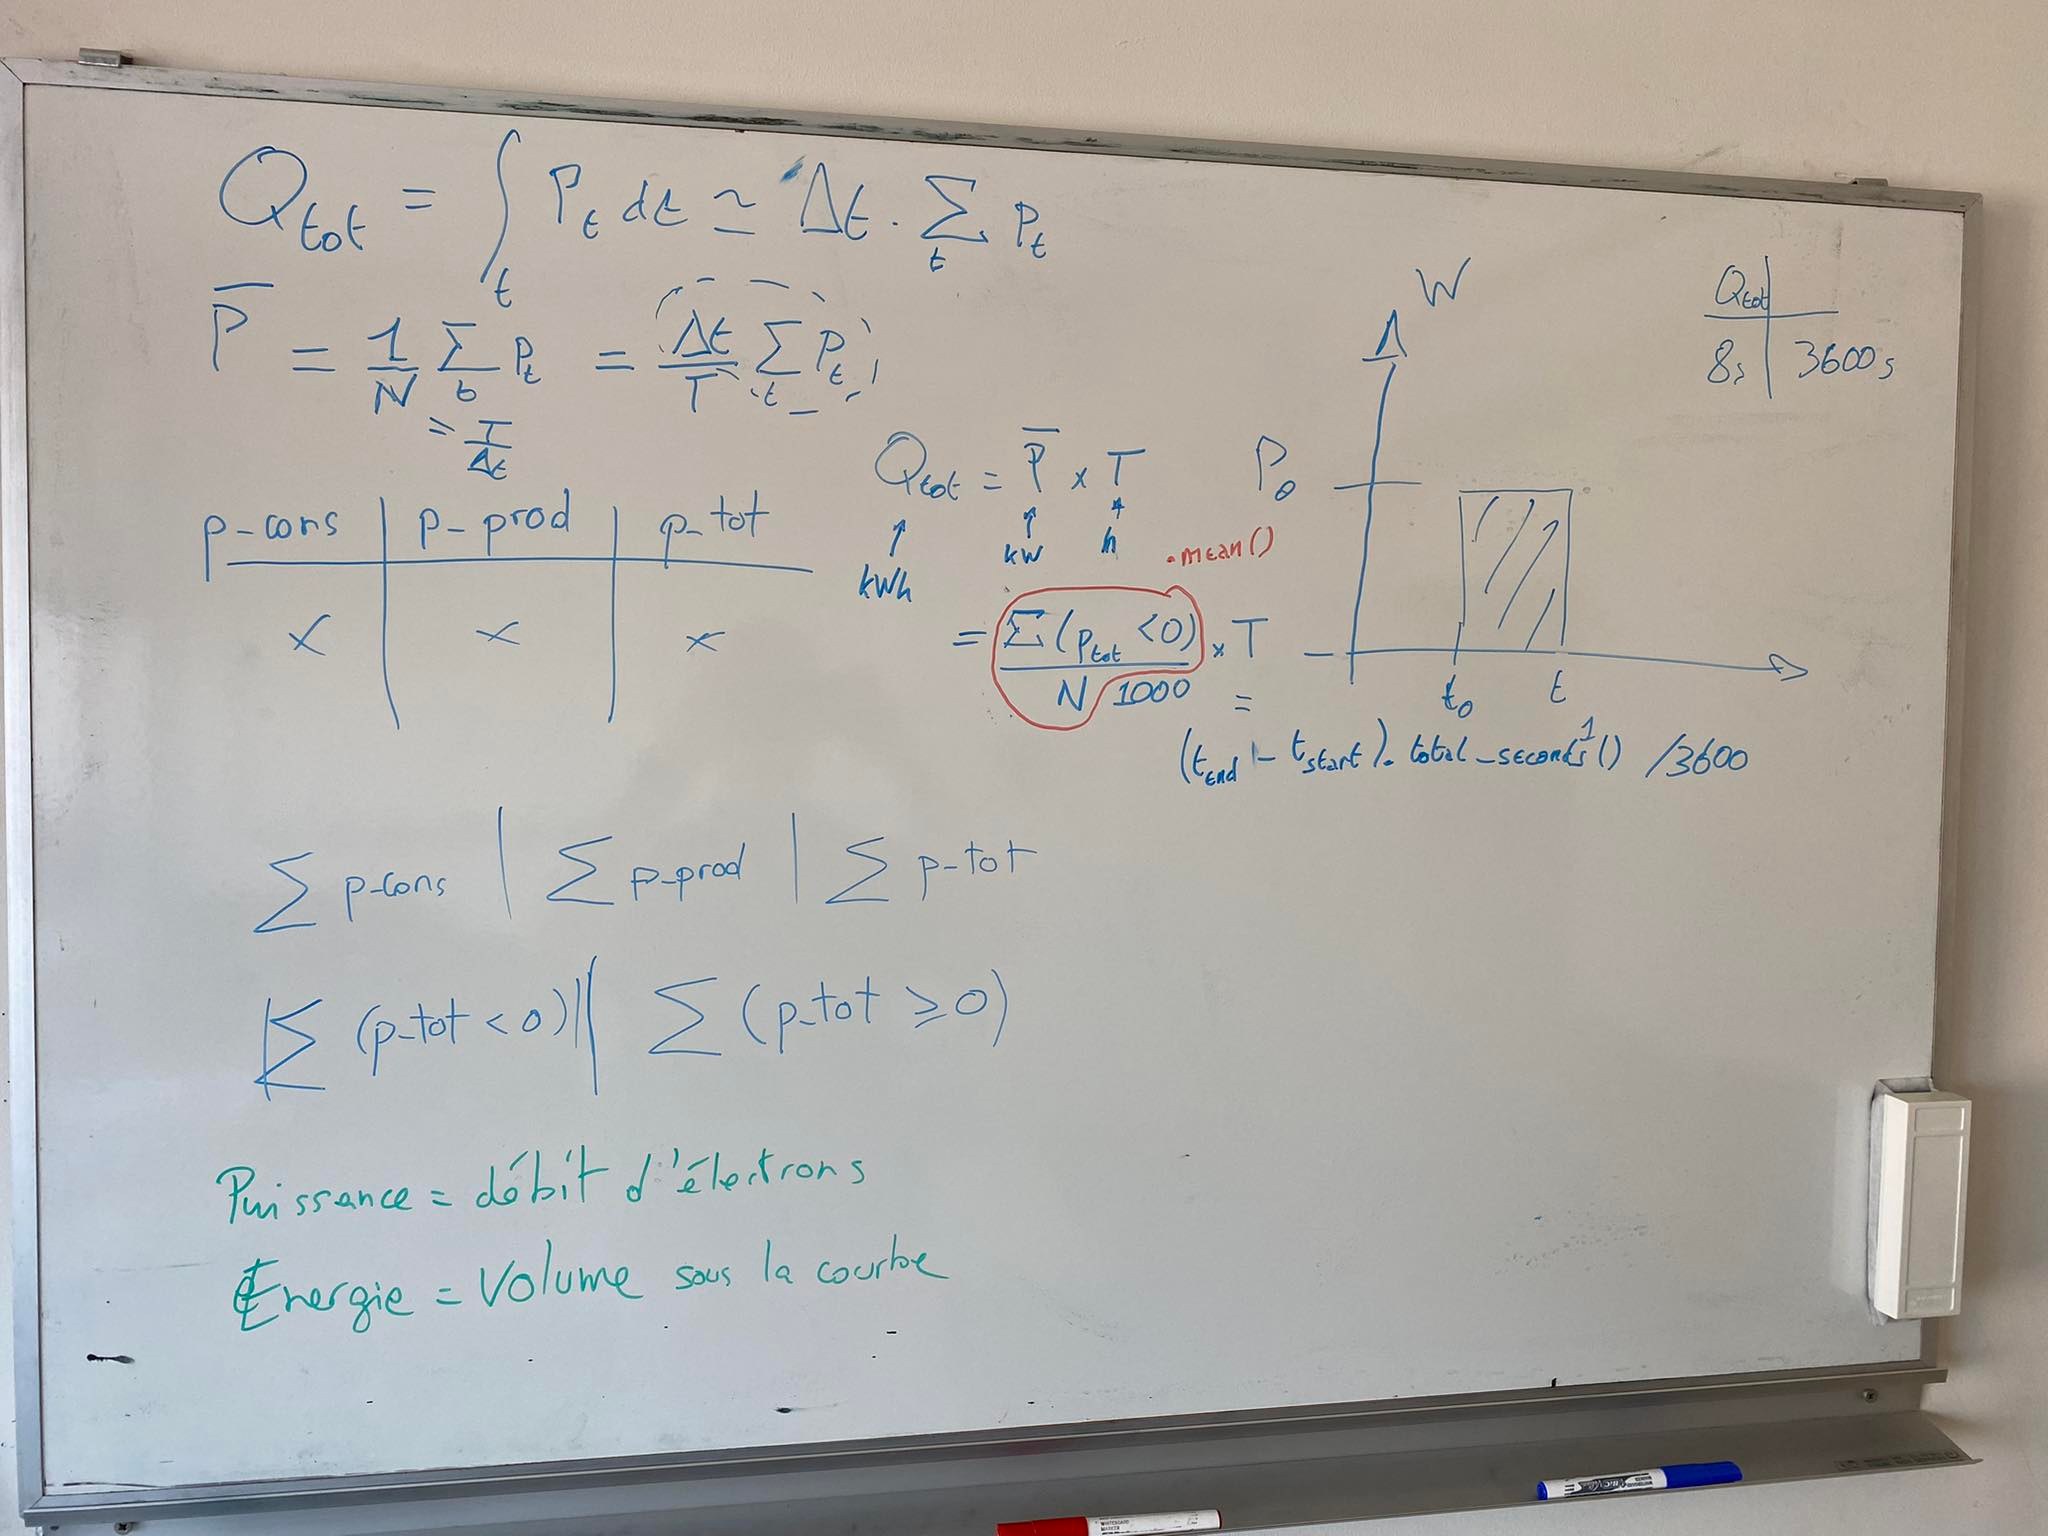 Q_tot = ∫_t P_t dt ≃ Δt · Σ_t P_t
P̅ = 1/N Σ_t P_t = Δt/T Σ_t P_t
= T/Δt
p_cons | p_prod | p_tot
x | x | x
Q_tot = P̅ x T
kWh kW h
.mean()
= Σ(p_tot <0) / N 1000 x T
=
(t_end - t_start).total_seconds() /3600
W
P_0
t_0 t
1
Q_tot
8s | 3600s
Σ p_cons | Σ p_prod | Σ p_tot
|Σ (p_tot < 0)| | Σ (p_tot ≥ 0)
Puissance = débit d'électrons
Énergie = Volume sous la courbe
WHITEBOARD
MARKER